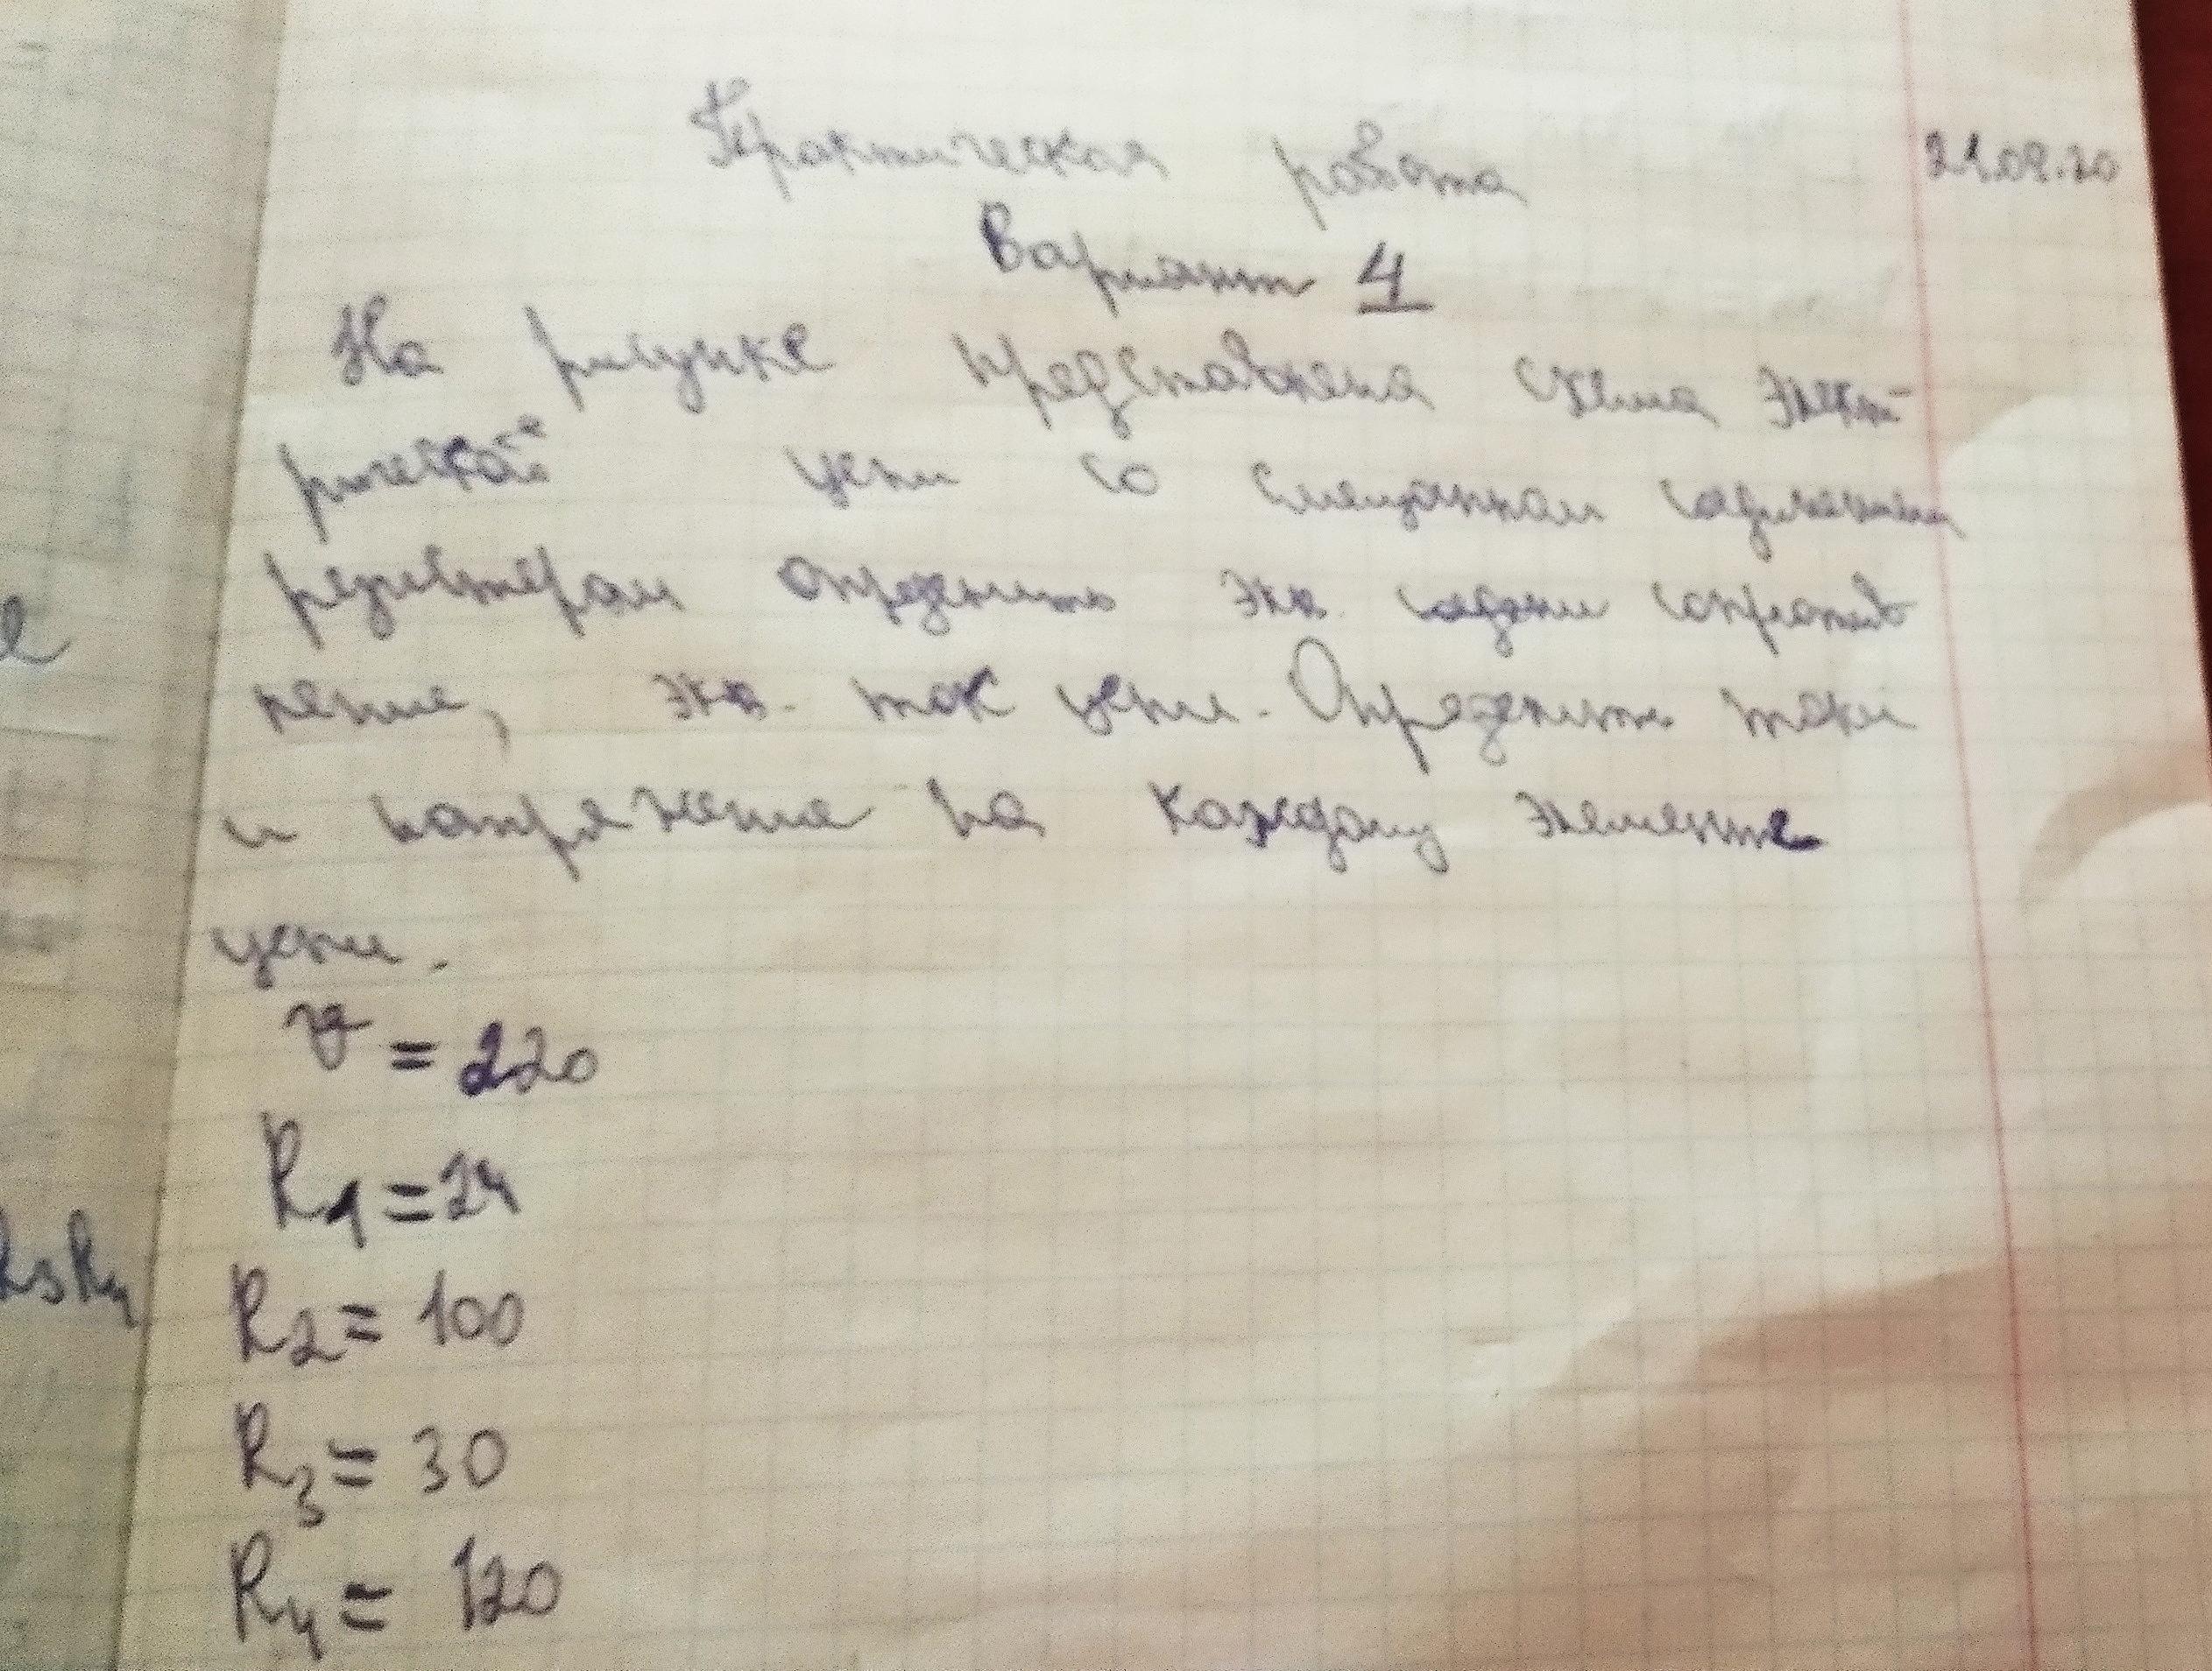 Практическая работа 21.09.20
Вариант 4
На рисунке представлена схема элект
рической цепи со смешанном соединением
резистерам определить экв. сопротив
ление, экв. ток цепи. Определить токи
и напряжение на каждому элементе
цепи.
U = 220
R1 = 24
R2 = 100
R3 = 30
R4 = 120
R3R4